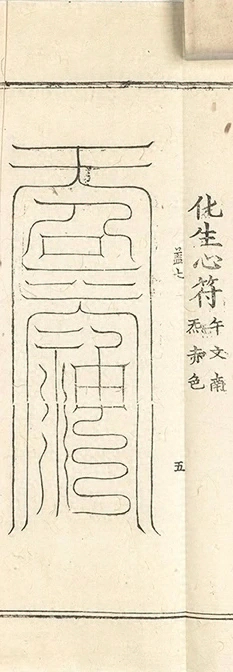 化生心符
午文南
炁赤色
蓋七
五